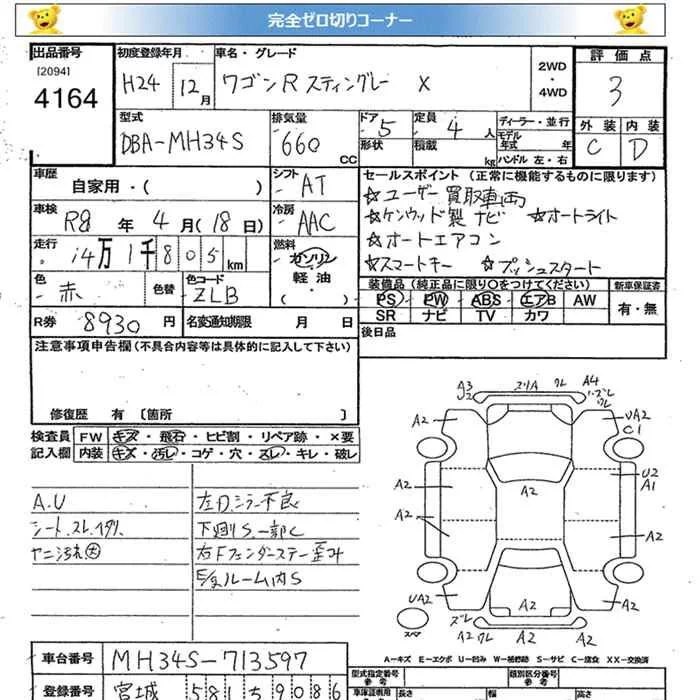 完全ゼロ切りコーナー
出品番号 [2094] 4164
初度登録年月 H24 12月
車名・グレード ワゴンR スティングレー X
2WD・4WD
評価点 3
外装 C 内装 D
型式 DBA-MH34S
排気量 660 CC
ドア 5 形状
定員 4 人 積載 kg
ディーラー・並行
モデル年式 年
ハンドル 左・右
車歴 自家用・( )
シフト AT
車検 R8 年 4 月 (18 日)
冷房 AAC
走行 14万1千805 km
燃料 ガソリン 軽油 ( )
色 赤 色替
色コード ZLB
R券 8930 円
名変通知期限 月 日
セールスポイント (正常に機能するものに限ります)
☆ユーザー買取車両
☆ケンウッド製ナビ ☆オートライト
☆オートエアコン
☆スマートキー ☆プッシュスタート
装備品(純正品に限り○をつけてください)
PS PW ABS エアB AW
SR ナビ TV カワ
新車保証書 有・無
後日品
注意事項申告欄(不具合内容等は具体的に記入して下さい)
修復歴 有〔箇所 〕
検査員記入欄
FW キズ・飛石・ヒビ割・リペア跡・×要
内装 キズ・汚レ・コゲ・穴・スレ・キレ・破レ
A.U
シート.スレ.ヘタリ
ヤニ汚れ大
左D.ミラー不良
下廻りS.一部C
右Fフェンダーステー歪み
E/gルーム内S
A3 2 スリA ワレ A4 ハズレ ワレ
A2 UA2 C1
A2 A2 U2 A1
A2 A2
UA2 A2 A2
スペア ズレ A2 ワレ A2 A2
A-キズ E-エクボ U-凹み W-補修跡 S-サビ C-腐食 XX-交換済
車台番号 MH34S-713597
登録番号 宮城 581 ち 9086
型式指定番号 参考
類別区分番号 参考
車庫証明用 長さ 幅 高さ